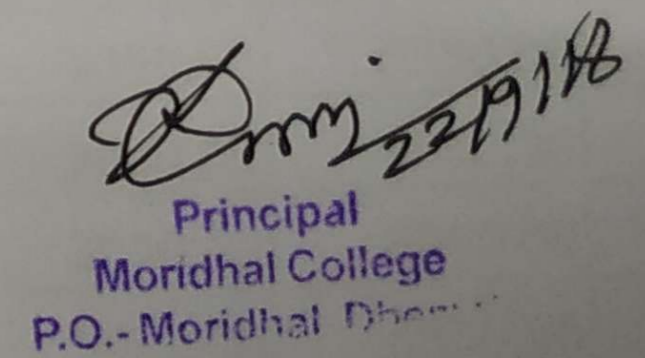 22/9/18
Principal
Moridhal College
P.O.- Moridhal